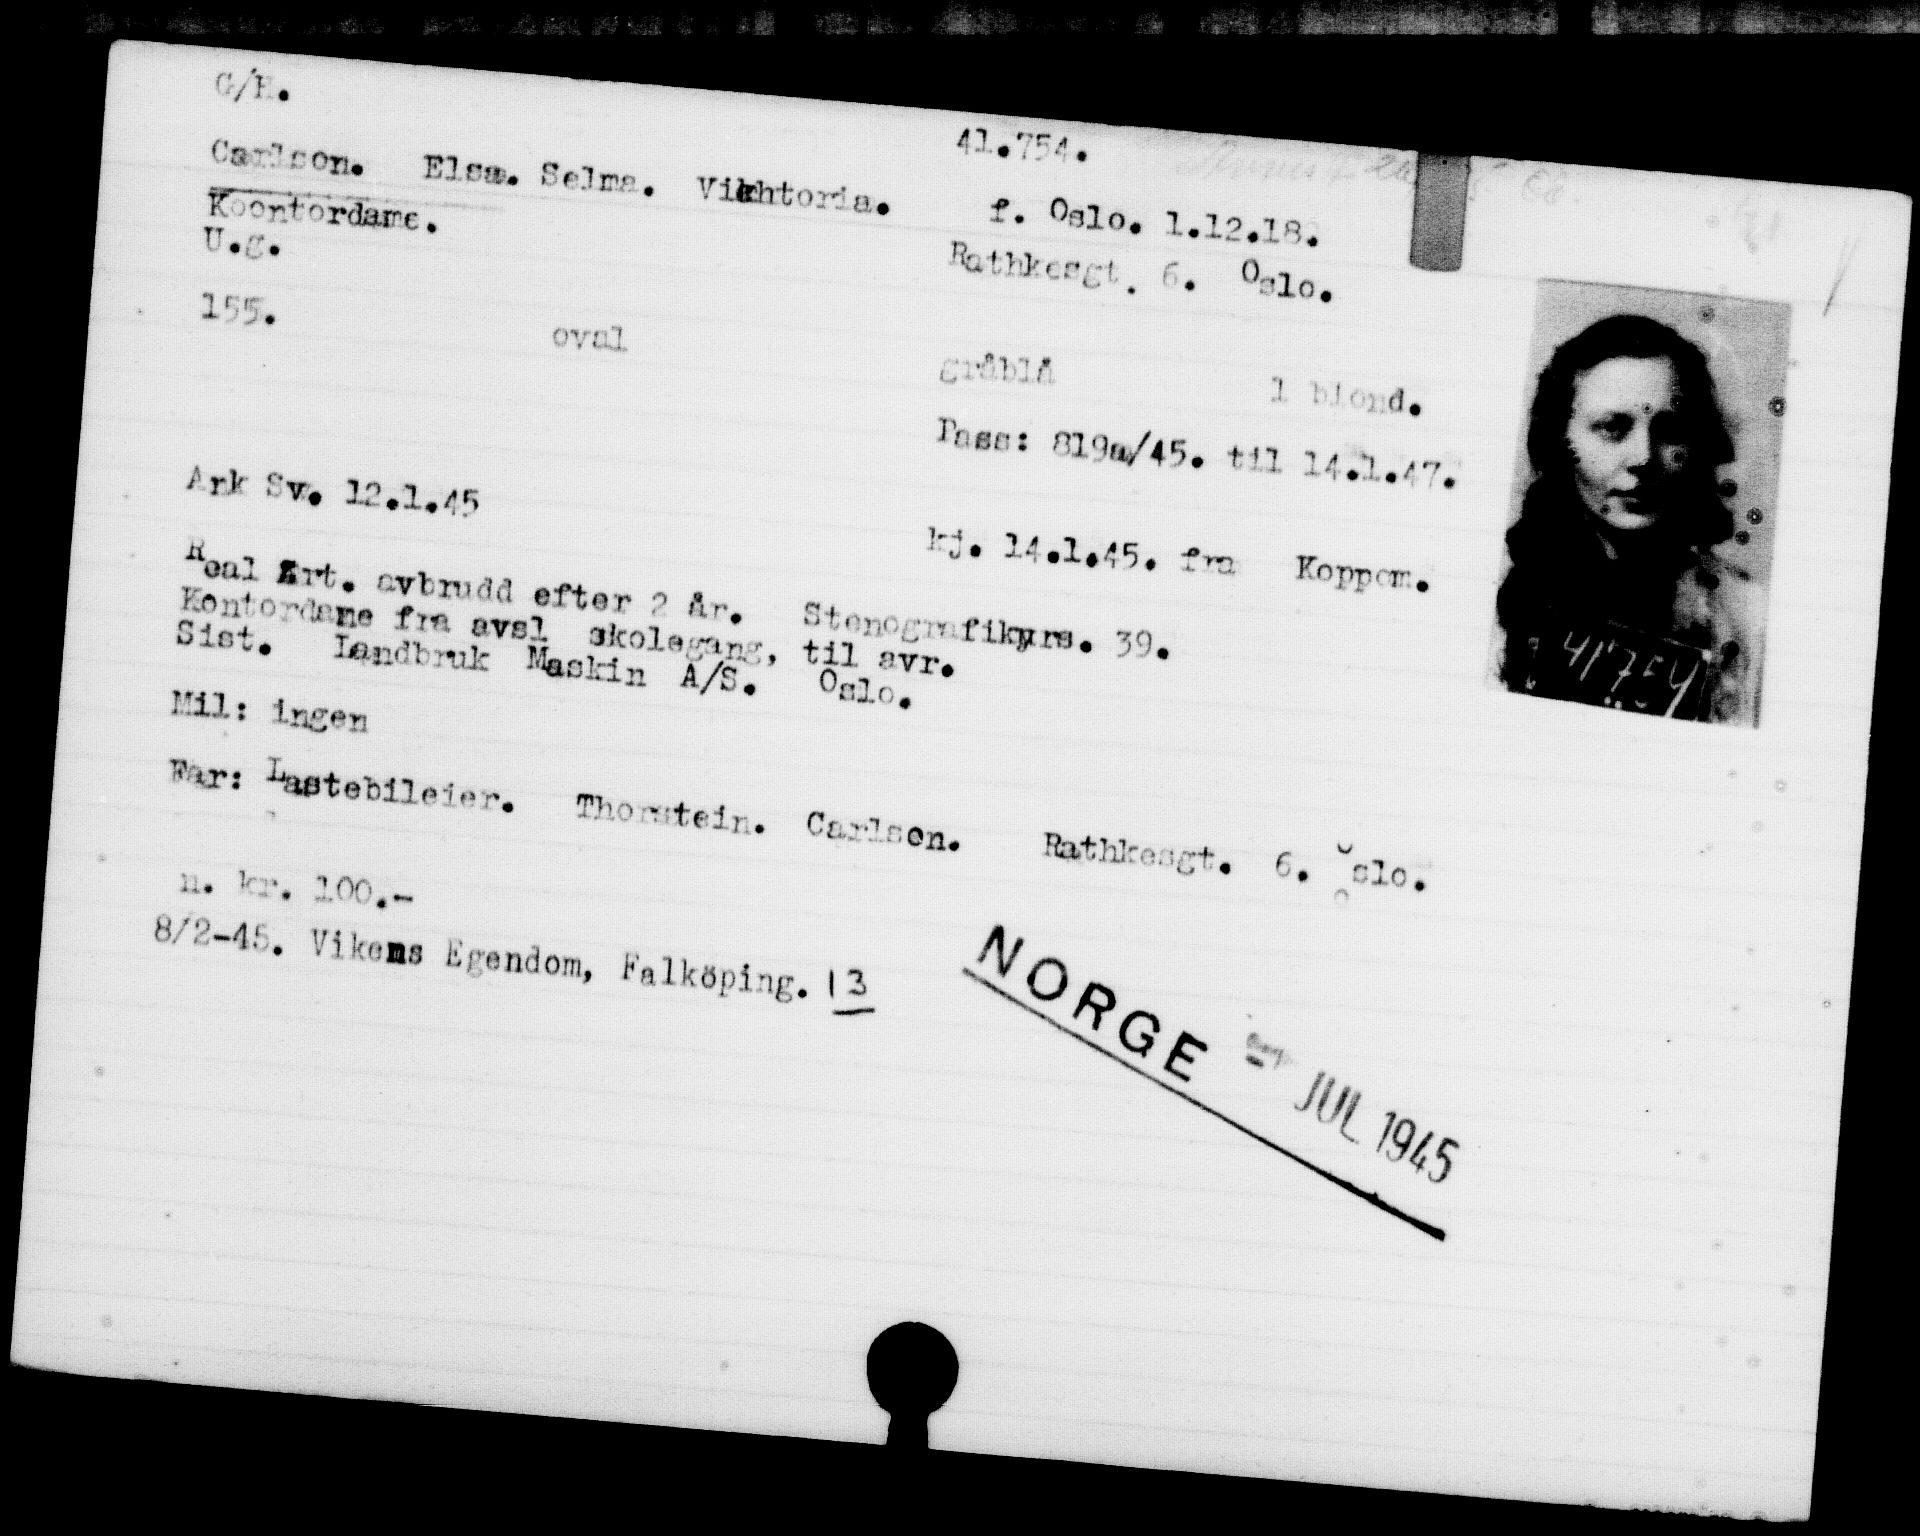 G/H.
41.754.
Carlson. Elsa. Selma. Vikhtoria. f. Oslo. 1.12.18.
Koontordame. Rathkesgt. 6. Oslo.
U.g.
155. oval gråblå l blond.
Pass: 819a/45. til 14.1.47.
Ark Sv. 12.1.45 kj. 14.1.45. fra Koppom.
Real Art. avbrudd efter 2 år. Stenografikurs. 39.
Kontordame fra avsl skolegang, til avr.
Sist. Landbruk Maskin A/S. Oslo.
Mil: ingen
Far: Lastebileier. Thorstein. Carlson. Rathkesgt. 6. Oslo.
n. kr. 100.-
8/2-45. Vikens Egendom, Falköping. 13
NORGE JUL 1945
41754